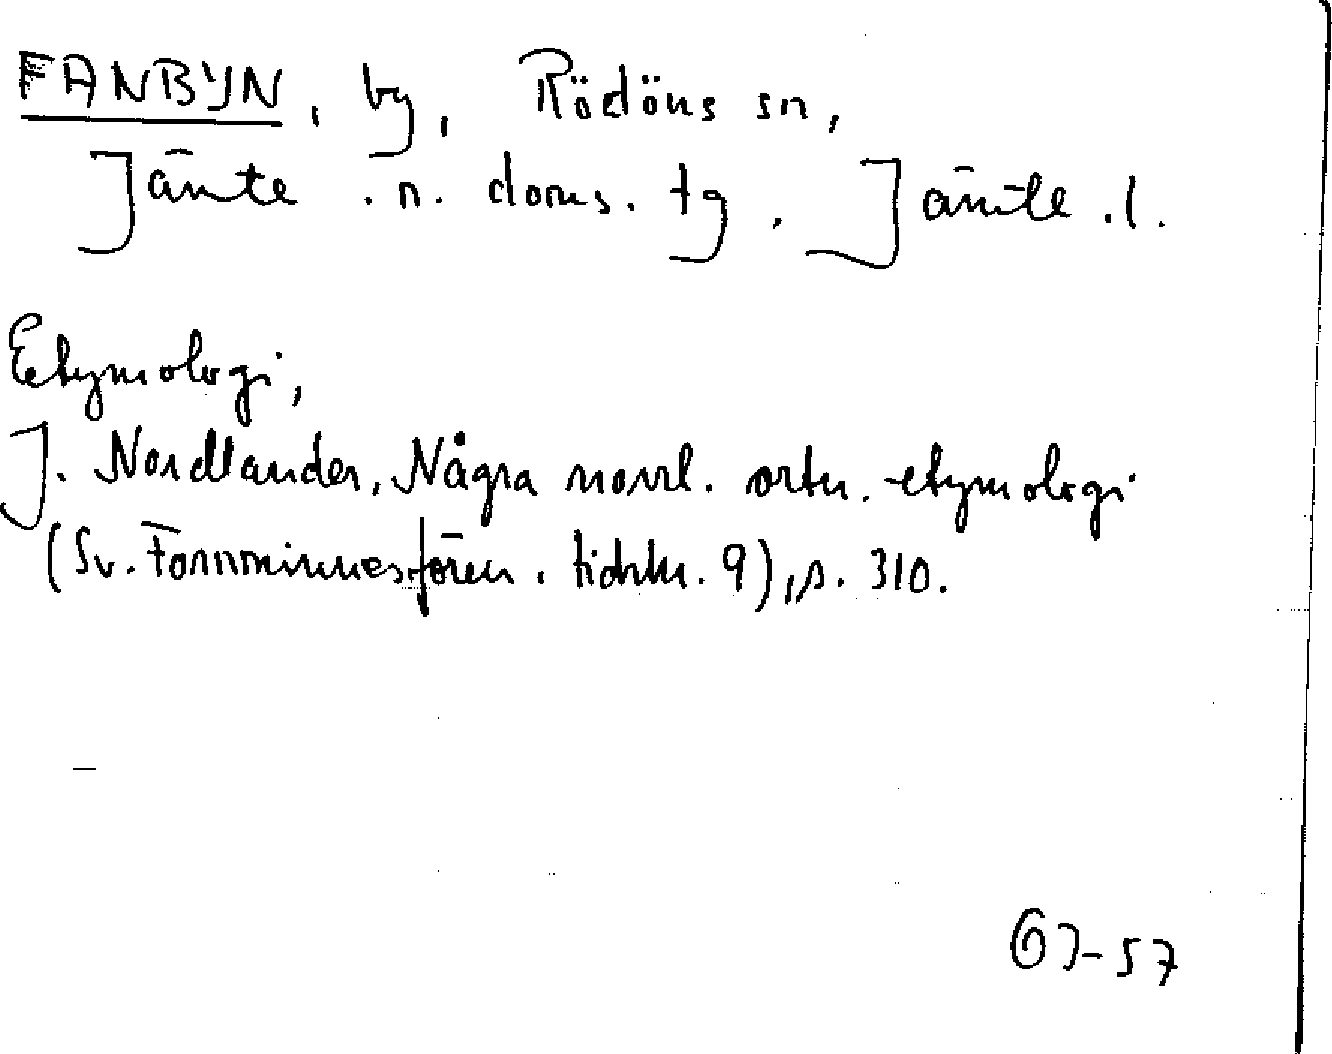 FANBYN, by, Rödöns sn,
Jämte. n. doms. tg. Jämtl. l.
Etymologi,
J. Nordlander, Några norrl. ortn. etymologi
(Sv. Fornminnesfören. tidskr. 9), s. 310.
GJ-57